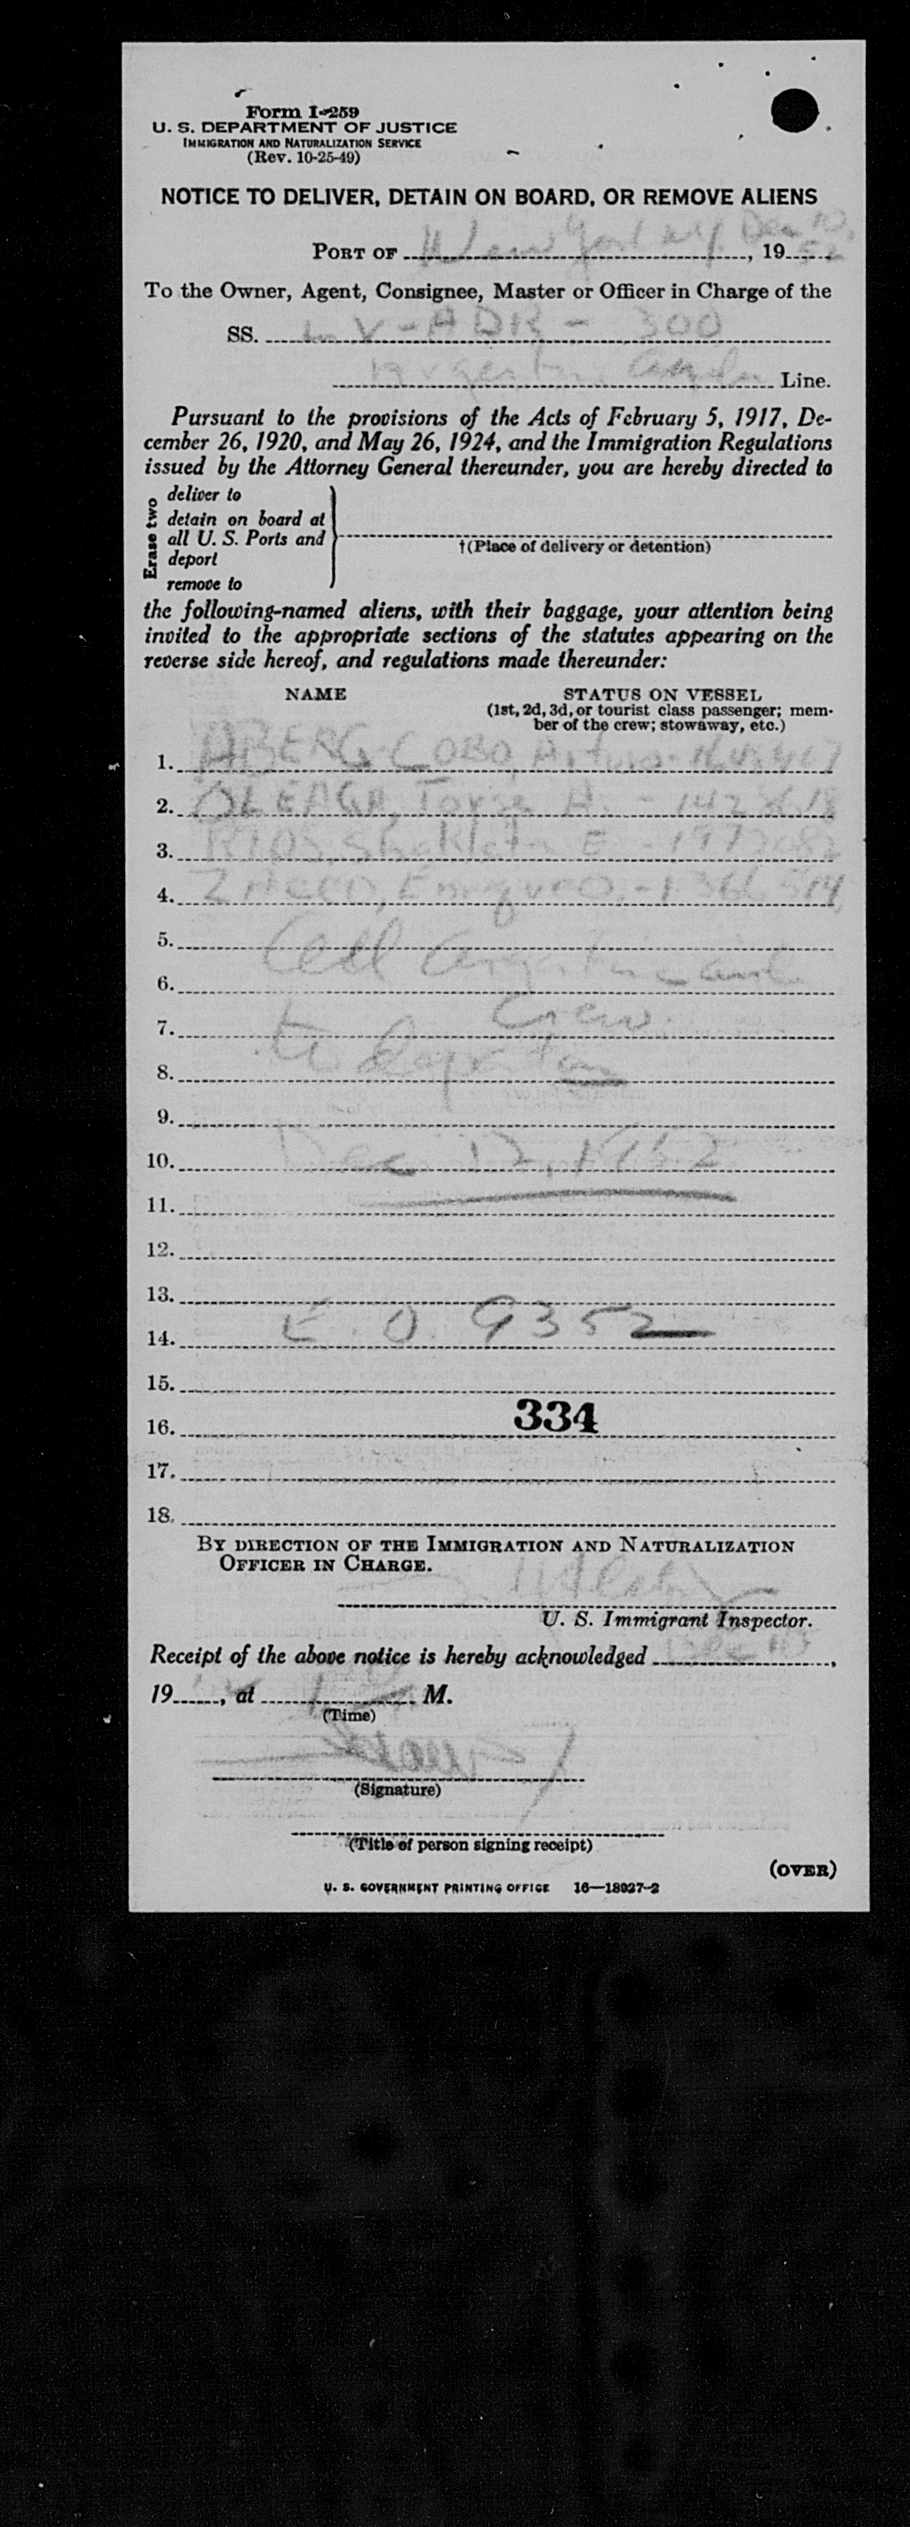 Form I-259
U. S. DEPARTMENT OF JUSTICE
IMMIGRATION AND NATURALIZATION SERVICE
(Rev. 10-25-49)
NOTICE TO DELIVER, DETAIN ON BOARD, OR REMOVE ALIENS
PORT OF New York N.Y. Dec 10, 1952
To the Owner, Agent, Consignee, Master or Officer in Charge of the
SS. LV-ADR-300
Line.
Pursuant to the provisions of the Acts of February 5, 1917, De-
cember 26, 1920, and May 26, 1924, and the Immigration Regulations
issued by the Attorney General thereunder, you are hereby directed to
Erase two
deliver to
detain on board at
all U. S. Ports and
deport
remove to
†(Place of delivery or detention)
the following-named aliens, with their baggage, your attention being
invited to the appropriate sections of the statutes appearing on the
reverse side hereof, and regulations made thereunder:
NAME STATUS ON VESSEL
(1st, 2d, 3d, or tourist class passenger; mem-
ber of the crew; stowaway, etc.)
1. ABERG-COBO, Arturo
2. OLEAGA, Jorge A. -
3. RIOS, E -
4. Enrique O. -
5. All
6.
7. Crew.
8. to depart on
9.
10. Dec 12, 1952
11.
12.
13.
14. E. O. 9352
15.
16. 334
17.
18.
BY DIRECTION OF THE IMMIGRATION AND NATURALIZATION
OFFICER IN CHARGE.
U. S. Immigrant Inspector.
Receipt of the above notice is hereby acknowledged Dec 10,
19 , at M.
(Time)
(Signature)
(Title of person signing receipt)
(OVER)
U. S. GOVERNMENT PRINTING OFFICE 16—18927-2